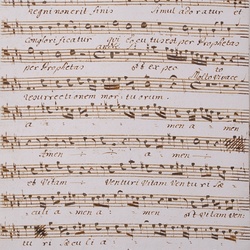 Regni non erit finis simul adoratur et
Conglorificatur qui locutus est per Prophetas
per Prophetas et exper to
Molto vivace
resurrectionem mortuorum
a men a men
amen a men
et Vitam Venturi Vitam Venturi Sæ
culi a men a men et Vitam Ven
tu ri sæ cu li a